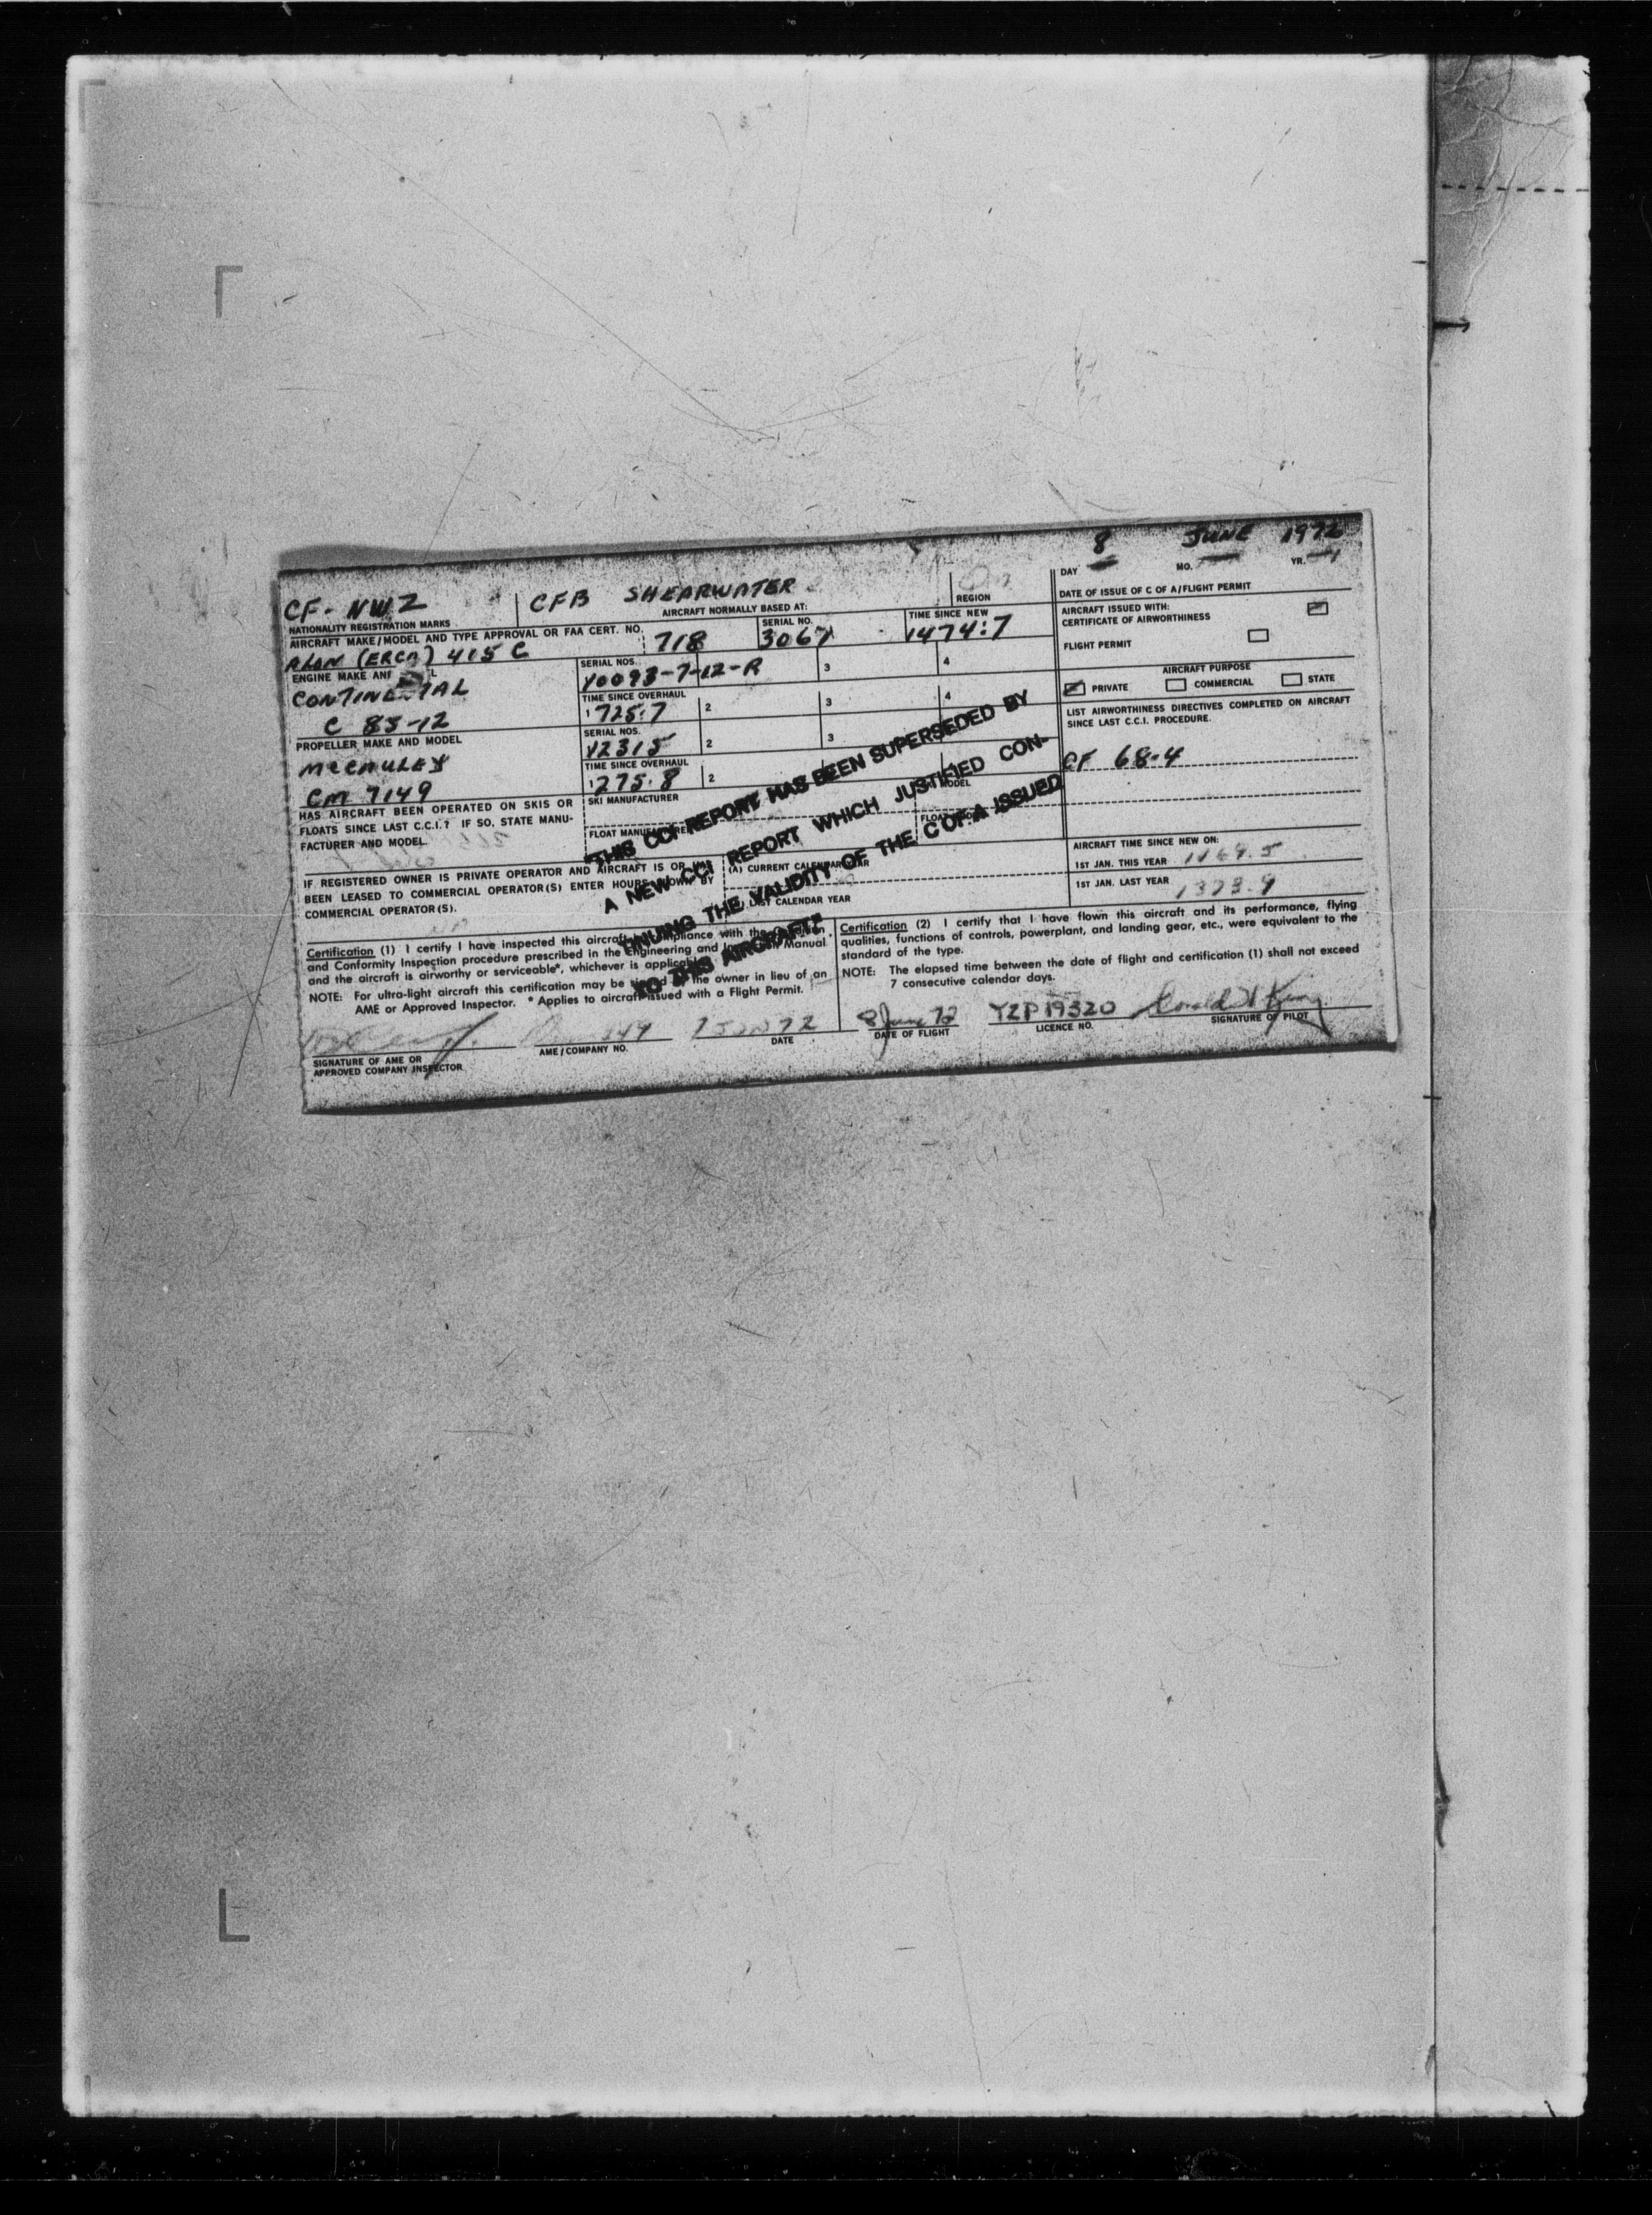 8 JUNE 1972
DAY MO. YR.
CF-NWZ CFB SHEARWATER
NATIONALITY REGISTRATION MARKS AIRCRAFT NORMALLY BASED AT: REGION DATE OF ISSUE OF C OF A/FLIGHT PERMIT
AIRCRAFT MAKE/MODEL AND TYPE APPROVAL OR FAA CERT. NO. 718 SERIAL NO. 3067 TIME SINCE NEW 1474:7
ALON (ERCO) 415 C
AIRCRAFT ISSUED WITH:
CERTIFICATE OF AIRWORTHINESS
FLIGHT PERMIT
AIRCRAFT PURPOSE
PRIVATE COMMERCIAL STATE
ENGINE MAKE
CONTINENTAL
C 85-12
SERIAL NOS. 3 4
Y0093-7-12-R
TIME SINCE OVERHAUL
1 725:7 2 3 4
PROPELLER MAKE AND MODEL
McCAULEY
CM 7149
SERIAL NOS.
V2315 2 3
TIME SINCE OVERHAUL
1 275.8 2
LIST AIRWORTHINESS DIRECTIVES COMPLETED ON AIRCRAFT
SINCE LAST C.C.I. PROCEDURE.
CF 68-4
HAS AIRCRAFT BEEN OPERATED ON SKIS OR
FLOATS SINCE LAST C.C.I.? IF SO, STATE MANU-
FACTURER AND MODEL.
SKI MANUFACTURER MODEL
FLOAT MANUFACTURER FLOAT
"THIS CCI REPORT HAS BEEN SUPERSEDED BY
A NEW CCI REPORT WHICH JUSTIFIED CON-
TINUING THE VALIDITY OF THE C OF A ISSUED
TO THIS AIRCRAFT"
IF REGISTERED OWNER IS PRIVATE OPERATOR AND AIRCRAFT IS OR HAS
BEEN LEASED TO COMMERCIAL OPERATOR(S) ENTER HOURS FLOWN BY
COMMERCIAL OPERATOR(S).
(A) CURRENT CALENDAR YEAR
LAST CALENDAR YEAR
AIRCRAFT TIME SINCE NEW ON:
1ST JAN. THIS YEAR
1ST JAN. LAST YEAR 1373.9
Certification (1) I certify I have inspected this aircraft in compliance with the
and Conformity Inspection procedure prescribed in the Engineering and Inspection Manual
and the aircraft is airworthy or serviceable*, whichever is applicable.
NOTE: For ultra-light aircraft this certification may be signed by the owner in lieu of an
AME or Approved Inspector. * Applies to aircraft issued with a Flight Permit.
349
SIGNATURE OF AME OR
APPROVED COMPANY INSPECTOR
AME/COMPANY NO. DATE
Certification (2) I certify that I have flown this aircraft and its performance, flying
qualities, functions of controls, powerplant, and landing gear, etc., were equivalent to the
standard of the type.
NOTE: The elapsed time between the date of flight and certification (1) shall not exceed
7 consecutive calendar days.
8 June 72 YZP 19320
DATE OF FLIGHT LICENCE NO. SIGNATURE OF PILOT